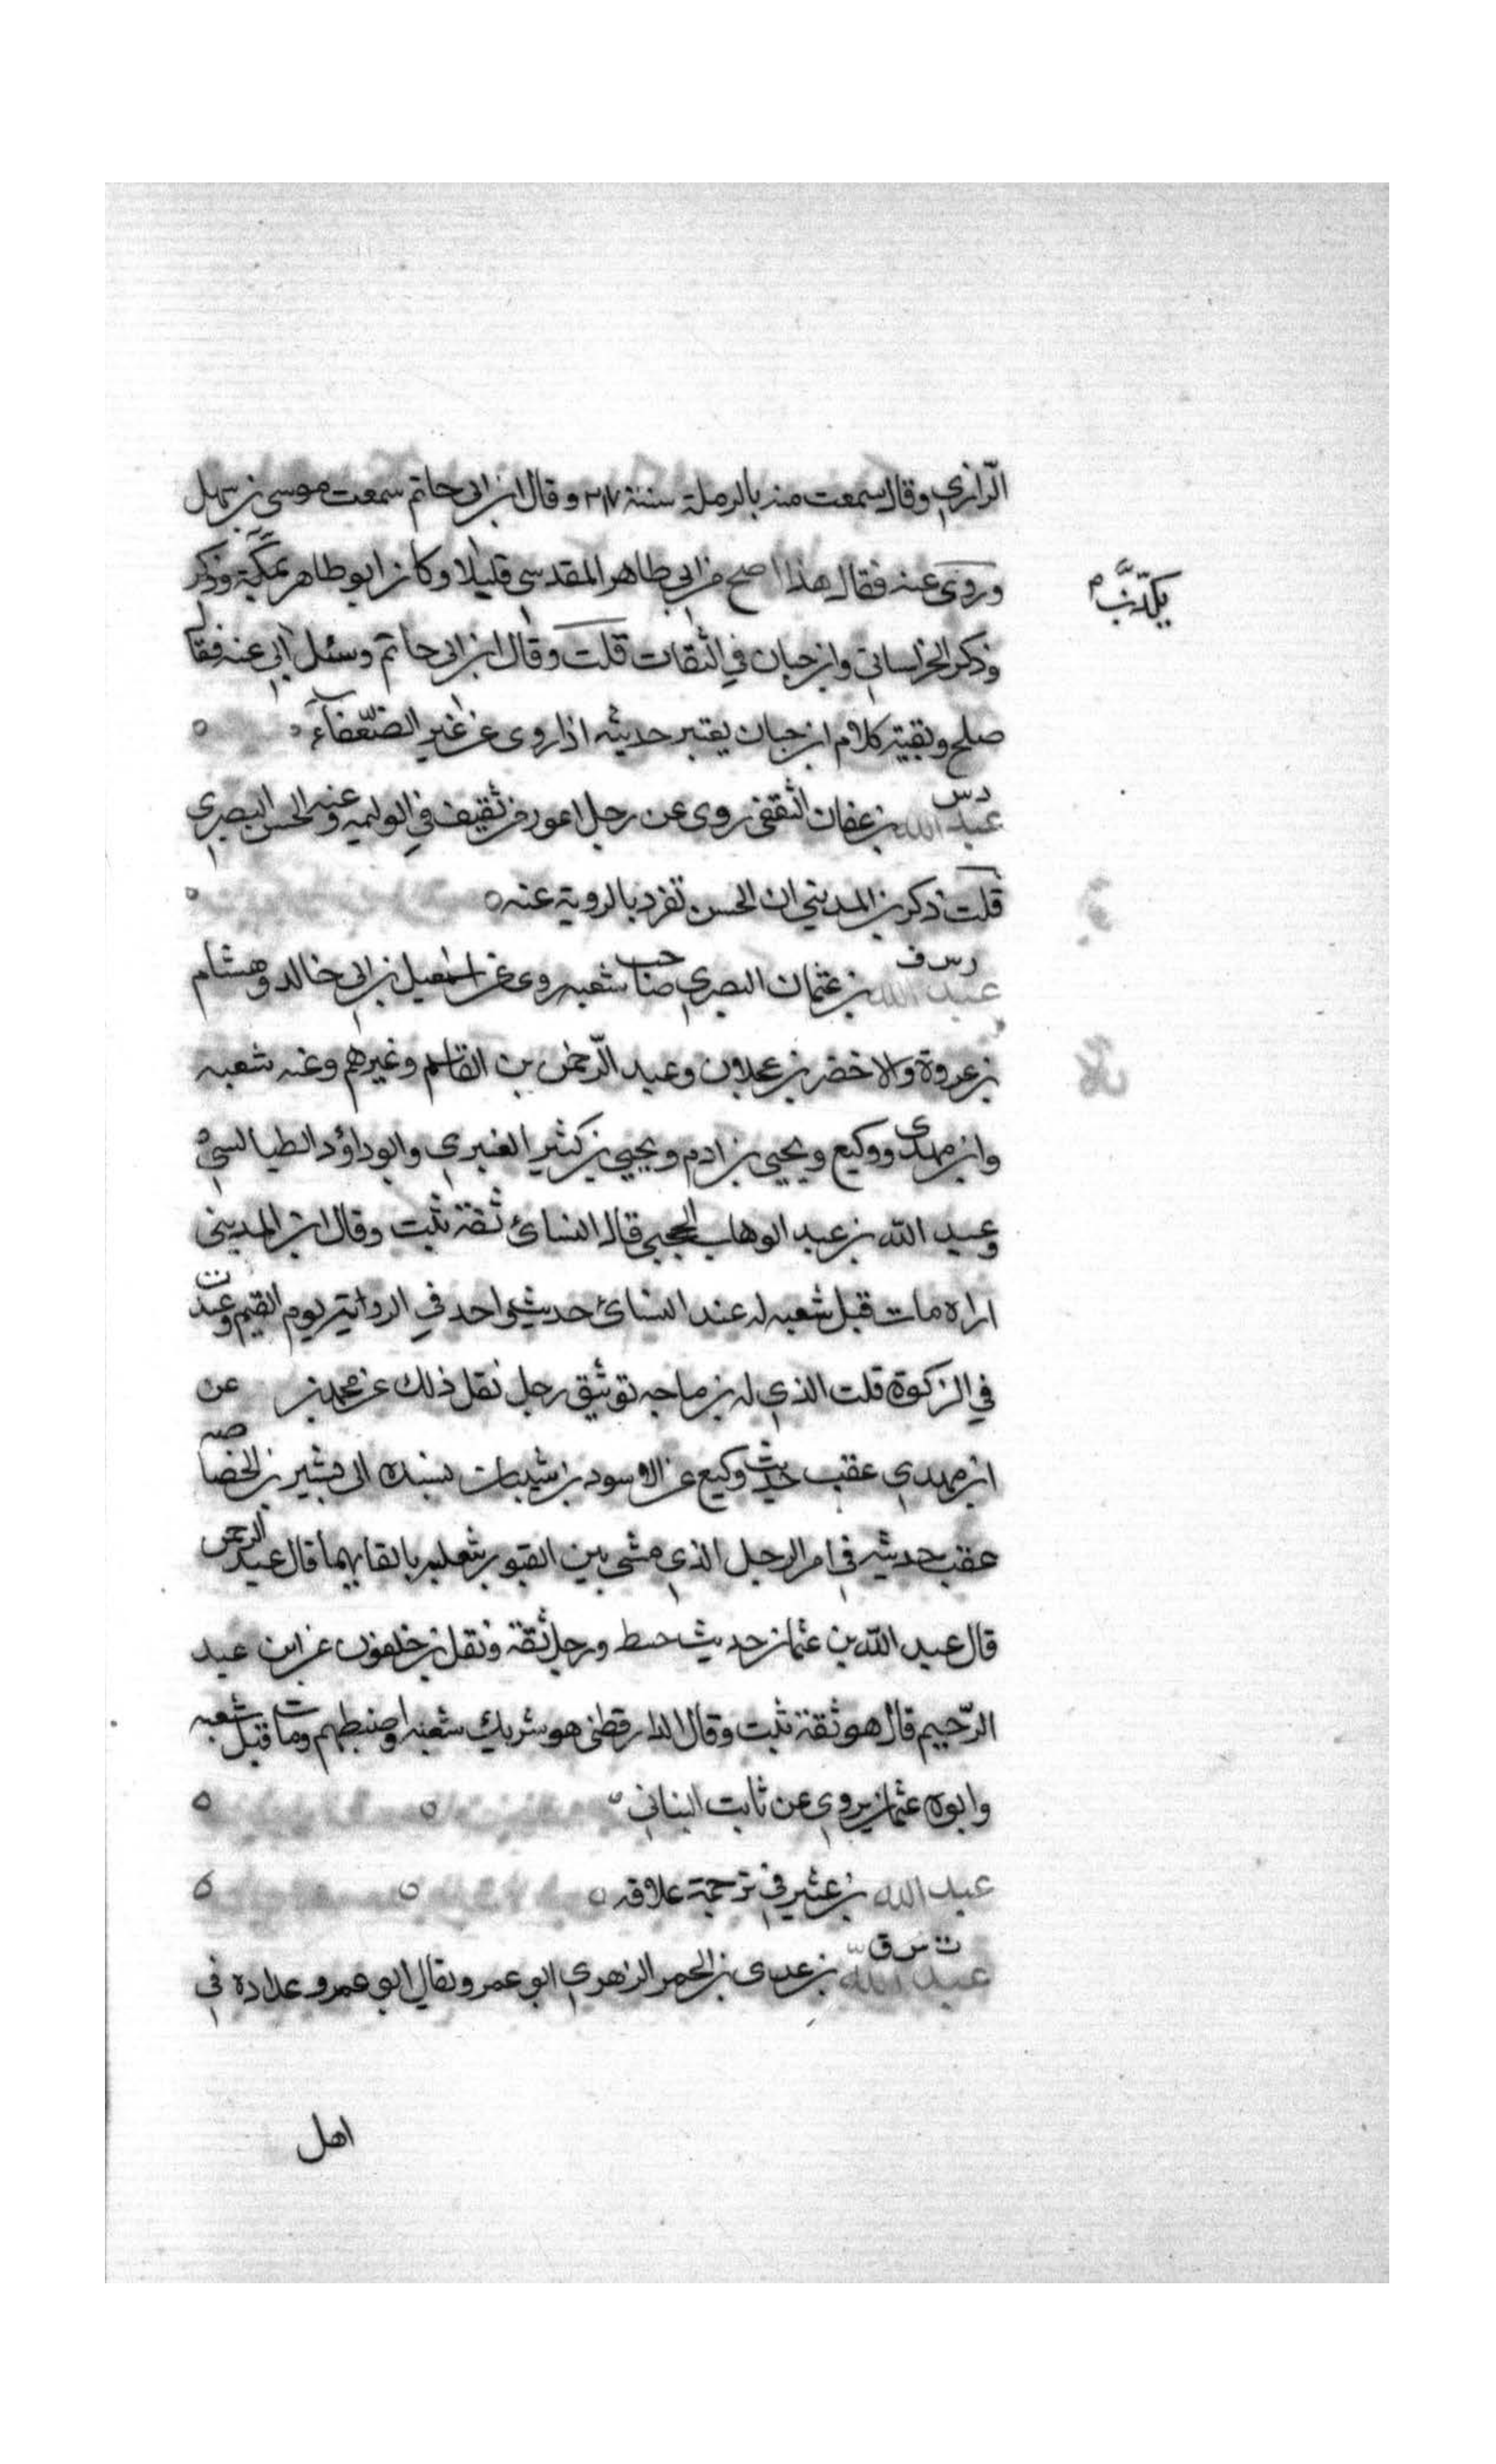 الرّازي وقال سمعت منه بالرملة سنة ٢١٧ وقال ابن ابى حاتم سمعت موسى بن سهل
وروى عنه فقال هذا اصح من ابي طاهر المقدسي قليلا وكان ابو طاهر
يكذّب م
وذكر الخراساني وابن حبان في الثقات قلت وقال ابن ابى حاتم وسئل ابي عنه فقال
صلح وبقية كلام ابن حبان يعتبر حديثه اذا روى عن غير الضعفاء
د س
عبد الله بن عفان الثقفى روى عن رجل اعور من ثقيف في الوليمه وعنه الحسن البصري
قلت ذكر بن المديني ان الحسن تفرد بالروية عنه
ر س ف
عبد الله بن عثمان البصري صاحب شعبه روى عن اسمعيل بن ابى خالد وهشام
بن عروة والاخضر بن عجلان وعبد الرّحمن بن القاسم وغيرهم وعنه شعبه
وابن مهدى ووكيع ويحيى بن ادم ويحيى بن كثير العنبري وابو داؤد الطيالسي
وعبد الله بن عبد الوهاب الحجبى قال النسائ ثقة ثبت وقال ابن المدينى
اراه مات قبل شعبه له عند النسائ حديث واحد في يوم القيم وعند ت
في الزكوة قلت الذي له بن ماجه توثيق رجل نقل ذلك عن محمد بن عن
ابن مهدي عقب حديث وكيع عن الاسود بن شيبان بسنده الى بشير بن الخصاصيه
عقب حديثه في امر الرجل الذي مشى بين القبور بالقايهما قال عبد الرحمن
قال عبد الله بن عثمان حديث ورجل ثقة ونقل بن خلفون عن ابن عبد
الرّحيم قال هو ثقة ثبت وقال الدارقطنى هو شريك شعبه واضبطهم ومات قبل شعبه
وابوه عثمان يروي عن ثابت البناني
عبد الله بن عثير في ترجمة علاقه
ت س ق
عبد الله بن عدى بن الحمر الزهري ابو عمر ويقال ابو عمرو عداده في
اهل